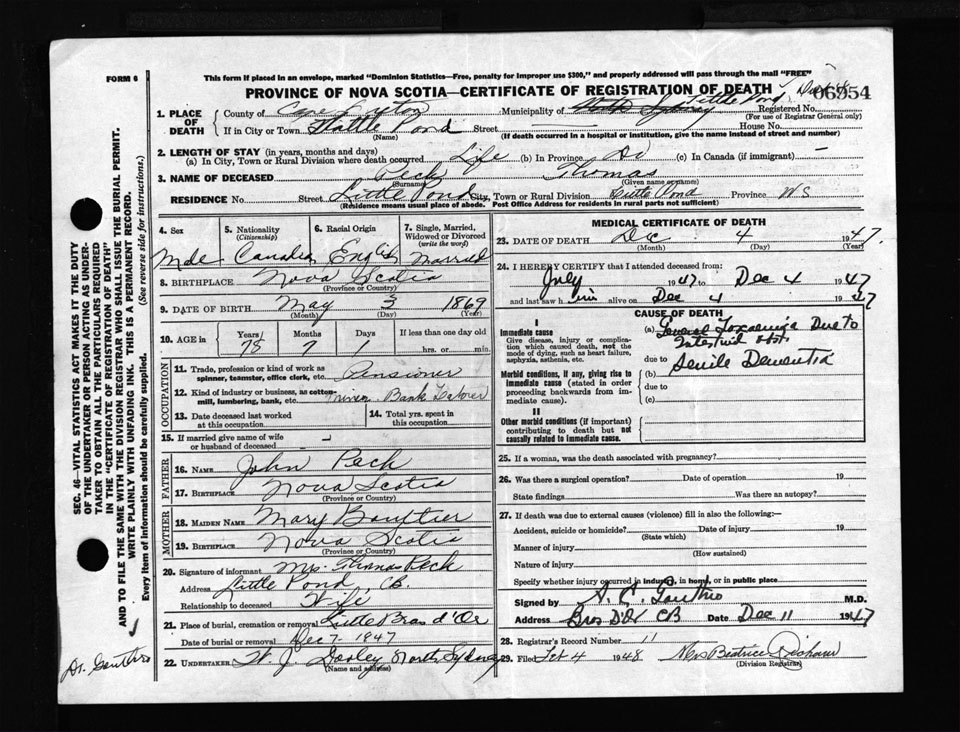 FORM 6
This form if placed in an envelope, marked "Dominion Statistics—Free, penalty for improper use $300," and properly addressed will pass through the mail "FREE"
PROVINCE OF NOVA SCOTIA—CERTIFICATE OF REGISTRATION OF DEATH
06554
1. PLACE OF DEATH
County of Cape Breton Municipality of North Sydney Little Pond Registered No.
(For use of Registrar General only)
If in City or Town Little Pond Street House No.
(Name) (If death occurred in a hospital or institution, give the name instead of street and number)
2. LENGTH OF STAY (in years, months and days)
(a) In City, Town or Rural Division where death occurred Life (b) In Province Do (c) In Canada (if immigrant) —
3. NAME OF DECEASED Peck Thomas
(Surname) (Given name or names)
RESIDENCE No. Street Little Pond City, Town or Rural Division Little Pond Province NS
(Residence means usual place of abode. Post Office Address for residents in rural parts not sufficient)
4. Sex
5. Nationality (Citizenship)
6. Racial Origin
7. Single, Married, Widowed or Divorced (write the word)
Male Canadian English Married
8. BIRTHPLACE Nova Scotia
(Province or Country)
9. DATE OF BIRTH May 3 1869
(Month) (Day) (Year)
10. AGE in Years Months Days If less than one day old
78 7 1 hrs. or min.
OCCUPATION
11. Trade, profession or kind of work as spinner, teamster, office clerk, etc. Pensioner
12. Kind of industry or business, as cotton-mill, lumbering, bank, etc. Bank Laborer
13. Date deceased last worked at this occupation
14. Total yrs. spent in this occupation
15. If married give name of wife or husband of deceased —
FATHER
16. NAME John Peck
17. BIRTHPLACE Nova Scotia
(Province or Country)
MOTHER
18. MAIDEN NAME Mary Boutier
19. BIRTHPLACE Nova Scotia
(Province or Country)
20. Signature of informant Mrs. Thomas Peck
Address Little Pond, CB.
Relationship to deceased Wife
21. Place of burial, cremation or removal Little Bras d'Or
Date of burial or removal Dec 7 - 1947
22. UNDERTAKER W. J. Dooley North Sydney
(Name and address)
MEDICAL CERTIFICATE OF DEATH
23. DATE OF DEATH Dec 4 1947.
(Month) (Day) (Year)
24. I HEREBY CERTIFY that I attended deceased from:
July 1947 to Dec 4 1947
and last saw him alive on Dec 4 1947
CAUSE OF DEATH
I
Immediate cause
Give disease, injury or complication which caused death, not the mode of dying, such as heart failure, asphyxia, asthenia, etc.
(a) General Toxaemia Due to
Intestinal
due to
Morbid conditions, if any, giving rise to immediate cause (stated in order proceeding backwards from immediate cause).
(b) Senile Dementia
due to
(c)
II
Other morbid conditions (if important) contributing to death but not causally related to immediate cause.
25. If a woman, was the death associated with pregnancy?
26. Was there a surgical operation? Date of operation 19
State findings Was there an autopsy?
27. If death was due to external causes (violence) fill in also the following:—
Accident, suicide or homicide? Date of injury 19
(State which)
Manner of injury
(How sustained)
Nature of injury
Specify whether injury occurred in industry, in home, or in public place
Signed by M.D.
Address Bras D'Or CB Date Dec 11 1947
28. Registrar's Record Number 11
29. Filed Feb 4 1948 Mrs Beatrice
(Division Registrar)
SEC. 46—VITAL STATISTICS ACT MAKES IT THE DUTY
OF THE UNDERTAKER OR PERSON ACTING AS UNDER-
TAKER TO OBTAIN ALL THE PARTICULARS REQUIRED
IN THE "CERTIFICATE OF REGISTRATION OF DEATH"
AND TO FILE THE SAME WITH THE DIVISION REGISTRAR WHO SHALL ISSUE THE BURIAL PERMIT.
WRITE PLAINLY WITH UNFADING INK. THIS IS A PERMANENT RECORD.
Every item of information should be carefully supplied. (See reverse side for instructions.)